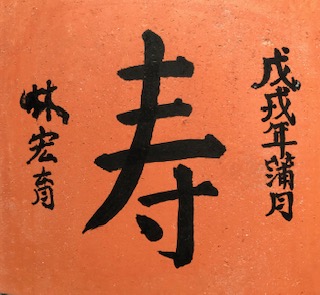 戊戌年蒲月
寿
林宏育